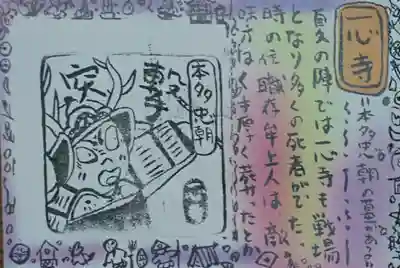 一心寺
本多忠朝の墓がある
夏の陣では一心寺も戦場
となり多くの死者がでた。
時の住職存牟上人は敵
味方なく手厚く葬ったとか
本多忠朝